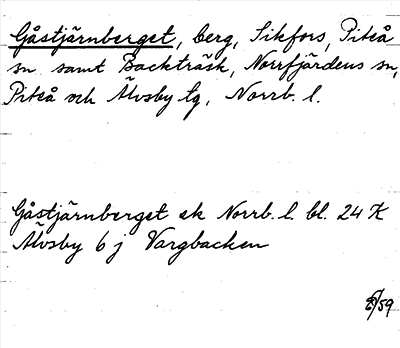 Gåstjärnberget, berg, Sikfors, Piteå
sn samt Backträsk, Norrfjärdens sn,
Piteå och Älvsby tg, Norrb. l.
Gåstjärnberget ek Norrb. l. bl. 24 K
Älvsby 6 j Vargbacken
/59